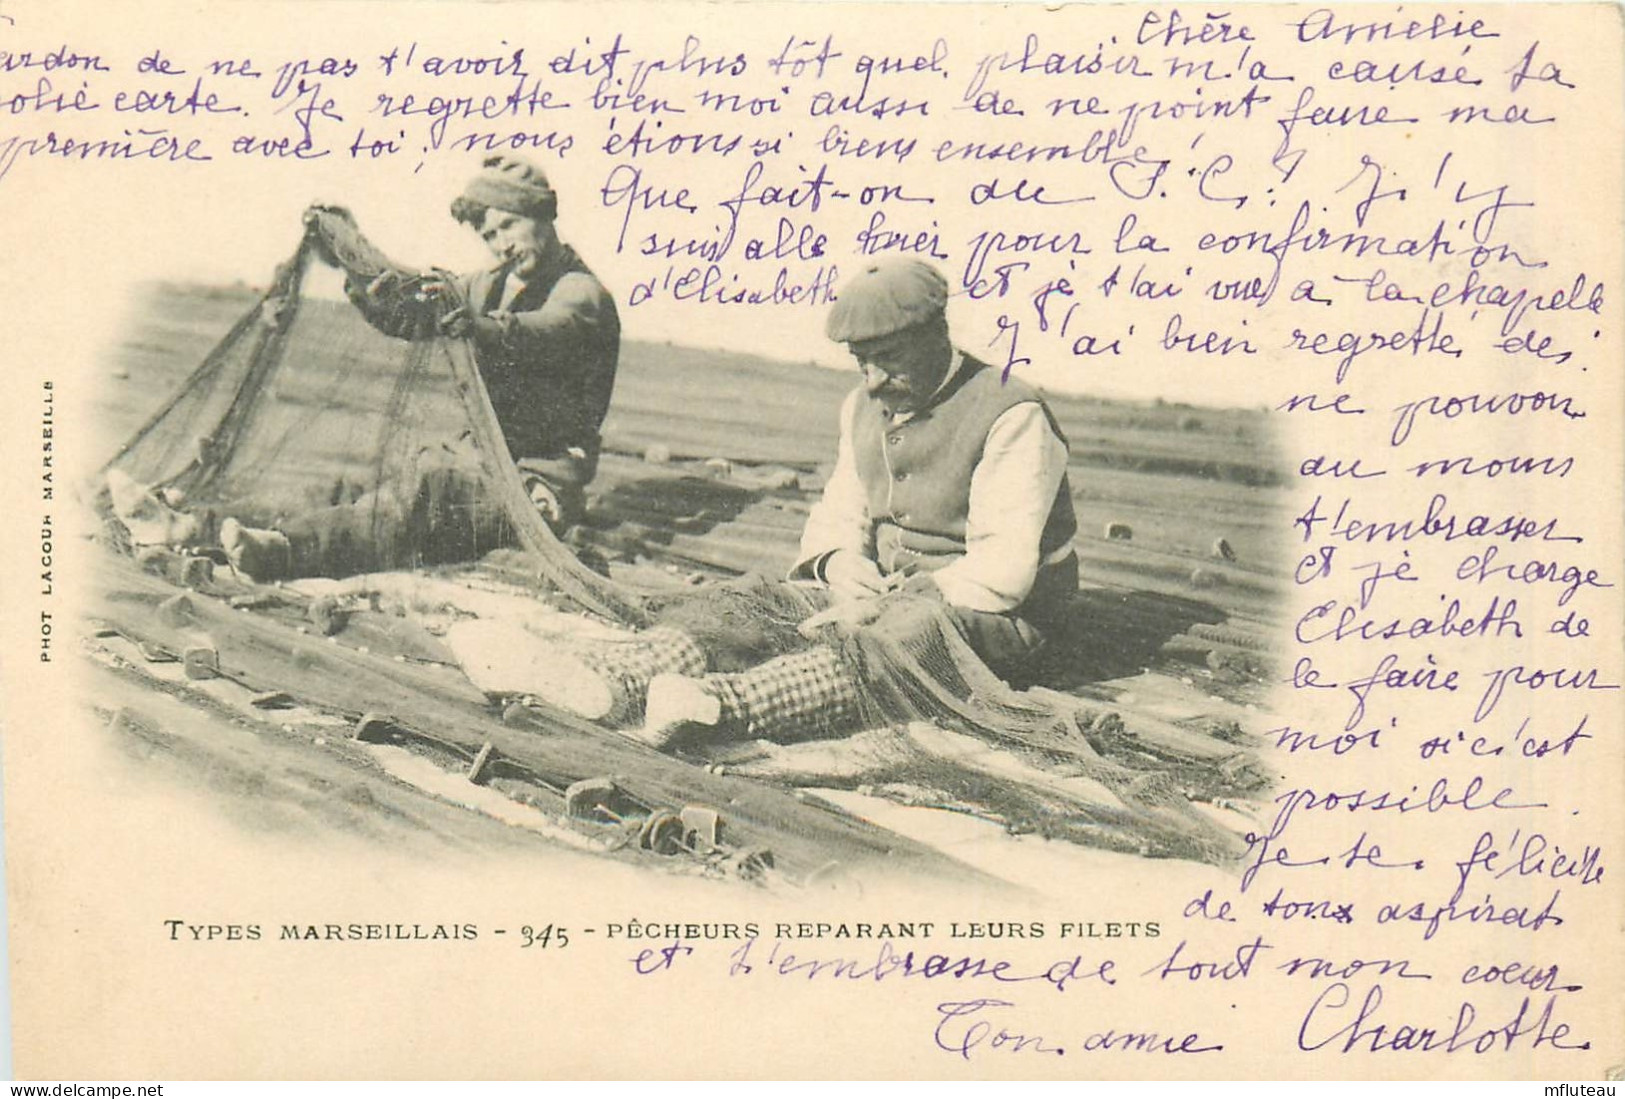 Chère Amélie
ardon de ne pas t'avoir dit plus tôt quel plaisir m'a causé ta
olie carte. Je regrette bien moi aussi de ne point faire ma
première avec toi ; nous étions si biens ensemble !
Que fait-on au S. C. ? J'y
suis allé hier pour la confirmation
d'Elisabeth et je t'ai vue à la chapelle
J'ai bien regretté de
ne pouvoir
au moins
t'embrasser
et je charge
Elisabeth de
le faire pour
moi si c'est
possible.
Je te félicite
de ton aspirat
et t'embrasse de tout mon coeur
Ton amie Charlotte
PHOT LACOUR MARSEILLE
TYPES MARSEILLAIS - 345 - PÊCHEURS REPARANT LEURS FILETS
mfluteau